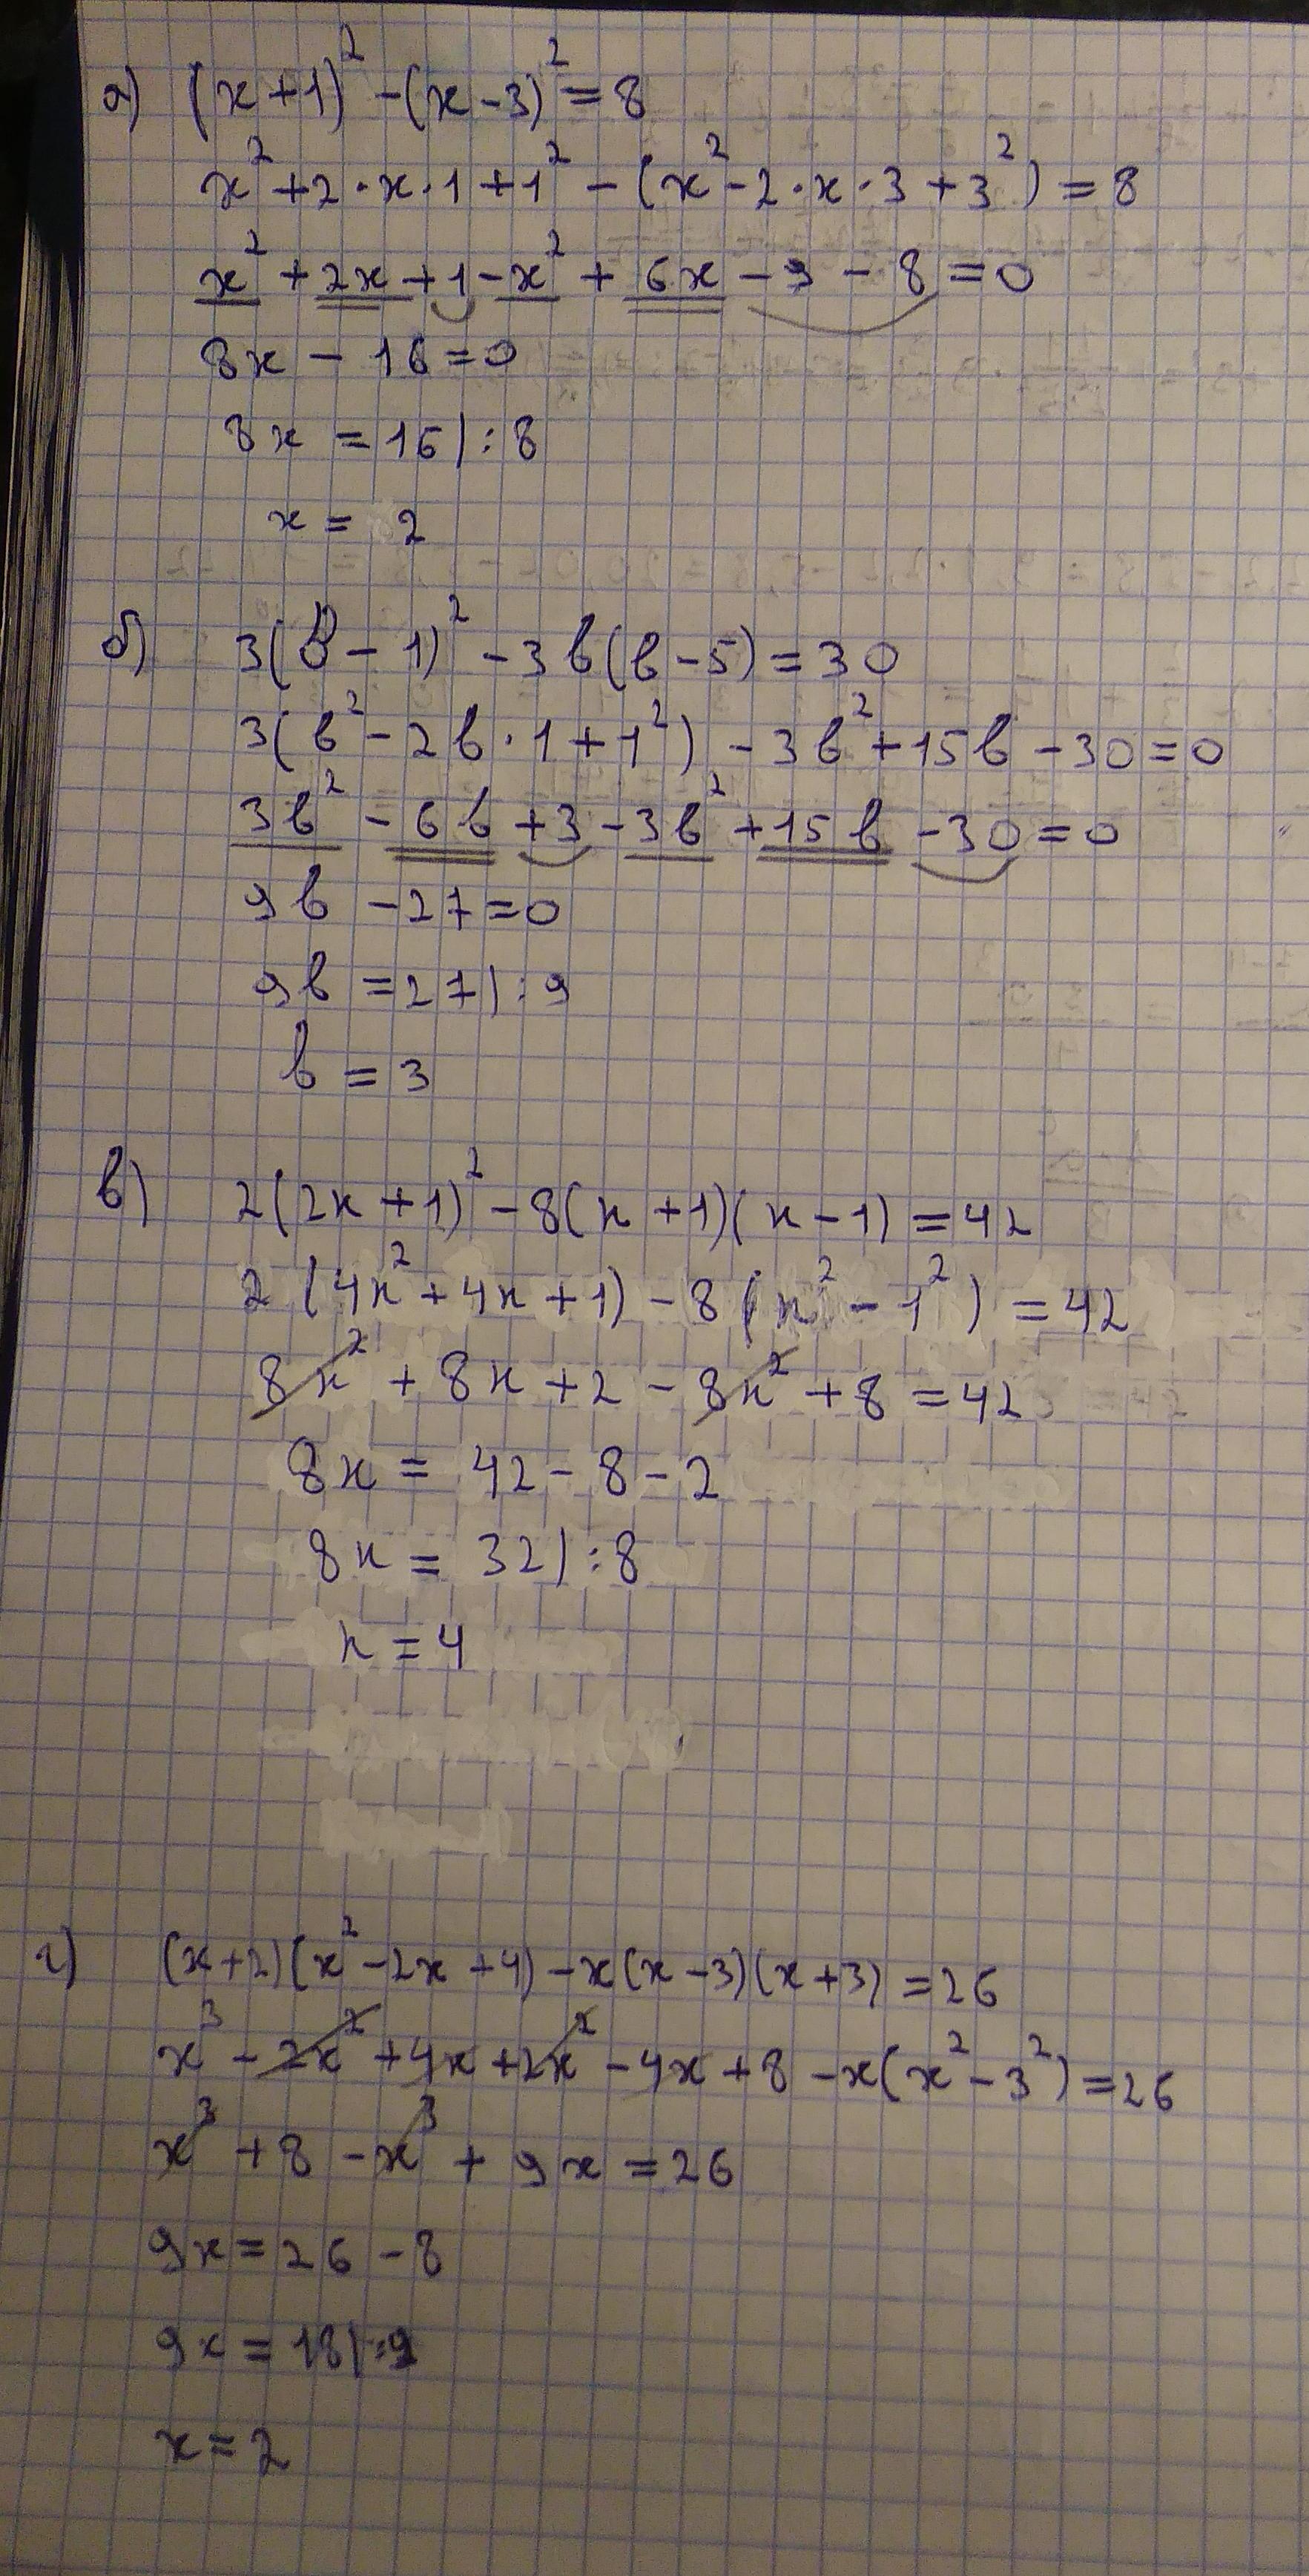 а) (x+1)² -(x-3)² = 8
x² +2·x·1+1² - (x² -2·x·3+3²) = 8
x² + 2x +1 -x² + 6x - 9 - 8 = 0
8x - 16 = 0
8x = 16 | : 8
x = 2
б) 3(в - 1)² - 3в(в-5) = 30
3(в² - 2в·1+1²) - 3в² +15в - 30 = 0
3в² - 6в +3 -3в² +15в -30 = 0
9в - 27 = 0
9в = 27 | : 9
в = 3
в) 2(2x+1)² - 8(x+1)(x-1) = 42
2 (4x² + 4x + 1) - 8 (x² - 1²) = 42
8x² + 8x + 2 - 8x² + 8 = 42
8x = 42 - 8 - 2
8x = 32 | : 8
x = 4
г) (x+2)(x² -2x +4) -x(x-3)(x+3) = 26
x³ - 2x² +4x +2x² - 4x + 8 -x(x² - 3²) = 26
x³ + 8 - x³ + 9x = 26
9x = 26 - 8
9x = 18 | : 9
x = 2